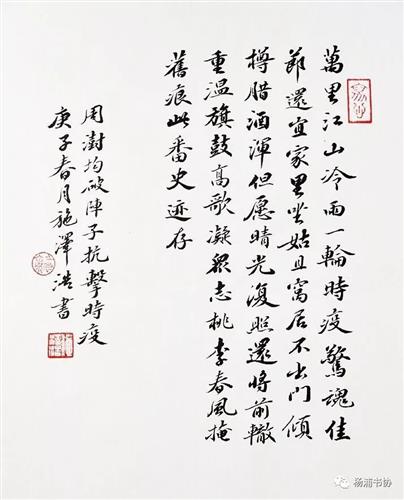 萬里江山冷雨一輪時疫驚魂佳
節還宜家里坐姑且窩居不出門傾
樽腊酒渾但愿晴光復照還將前轍
重温旗鼓高歌凝眾志桃李春風掩
舊痕此番史迹存
用澍均破陣子抗擊時疫
庚子春月施澤浩書
杨浦书协